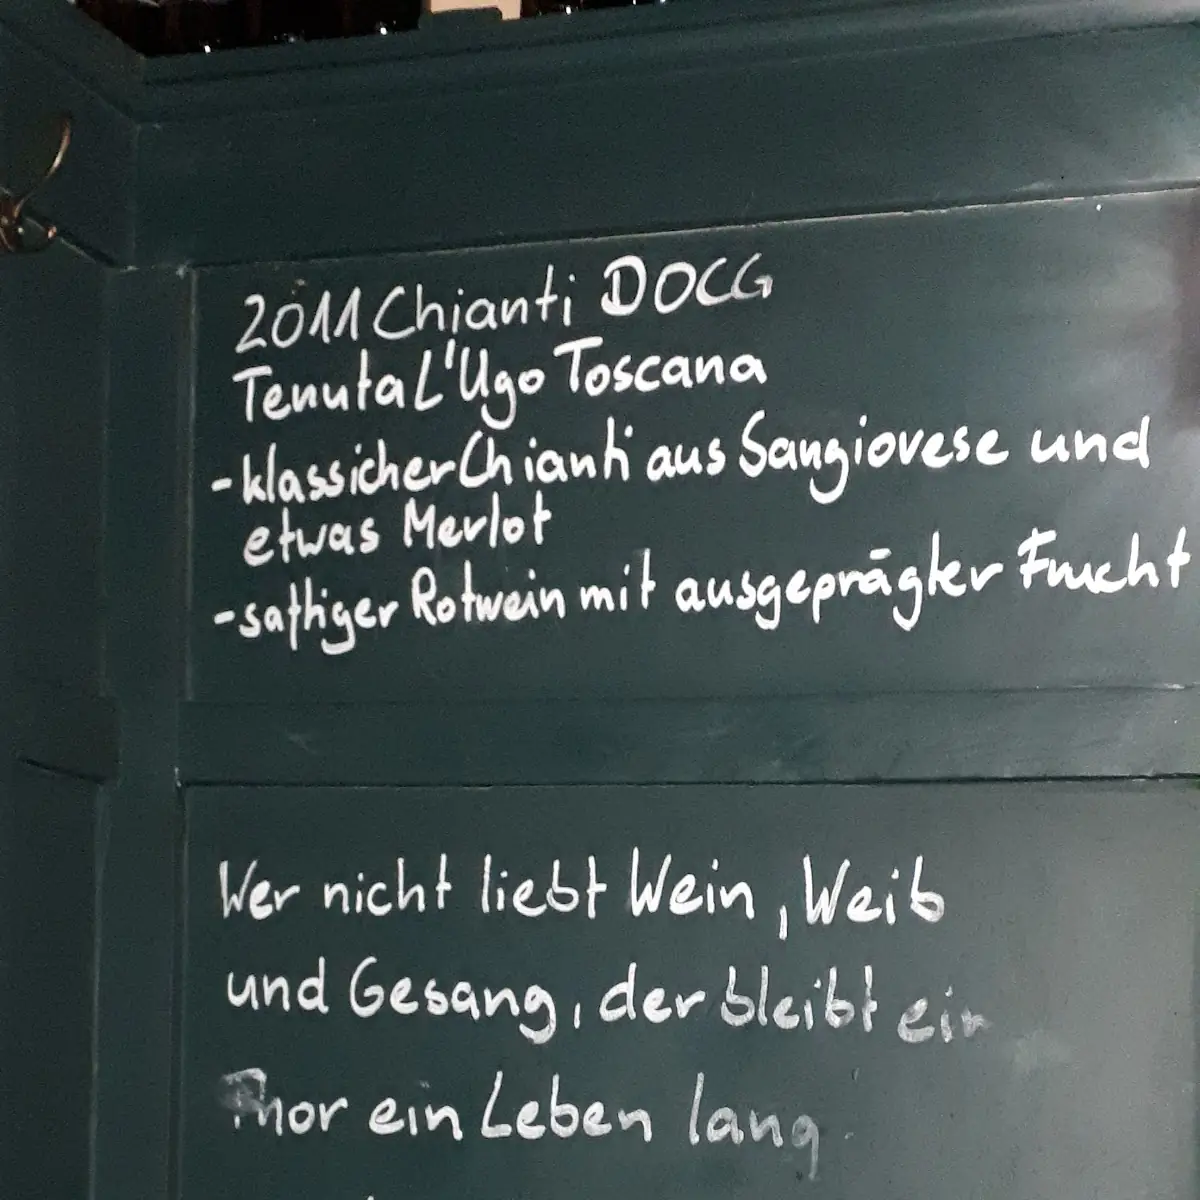 2011 Chianti DOCG
Tenuta L'Ugo Toscana
- klassicher Chianti aus Sangiovese und
etwas Merlot
- saftiger Rotwein mit ausgeprägter Frucht
Wer nicht liebt Wein, Weib
und Gesang, der bleibt ein
Thor ein Leben lang.